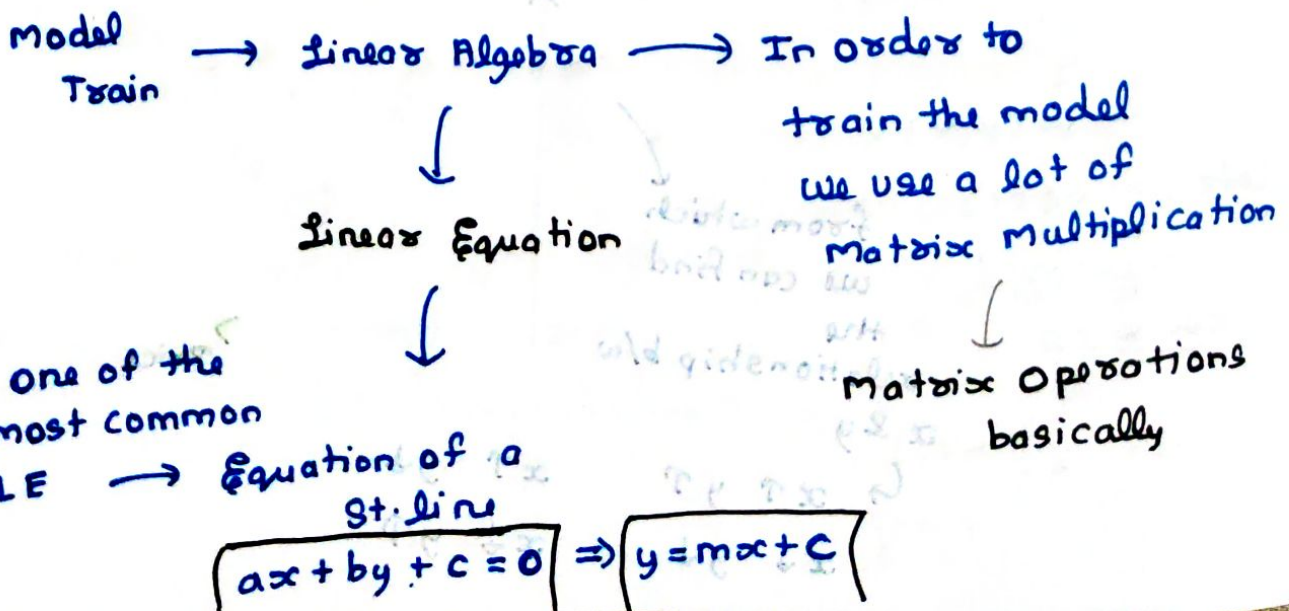 Model
Train → Linear Algebra → In order to
train the model
we use a lot of
Matrix Multiplication
↓
Matrix Operations
basically
↓
Linear Equation
↓
one of the
most common
LE → Equation of a
St. line
ax + by + c = 0 ⇒ y = mx + c